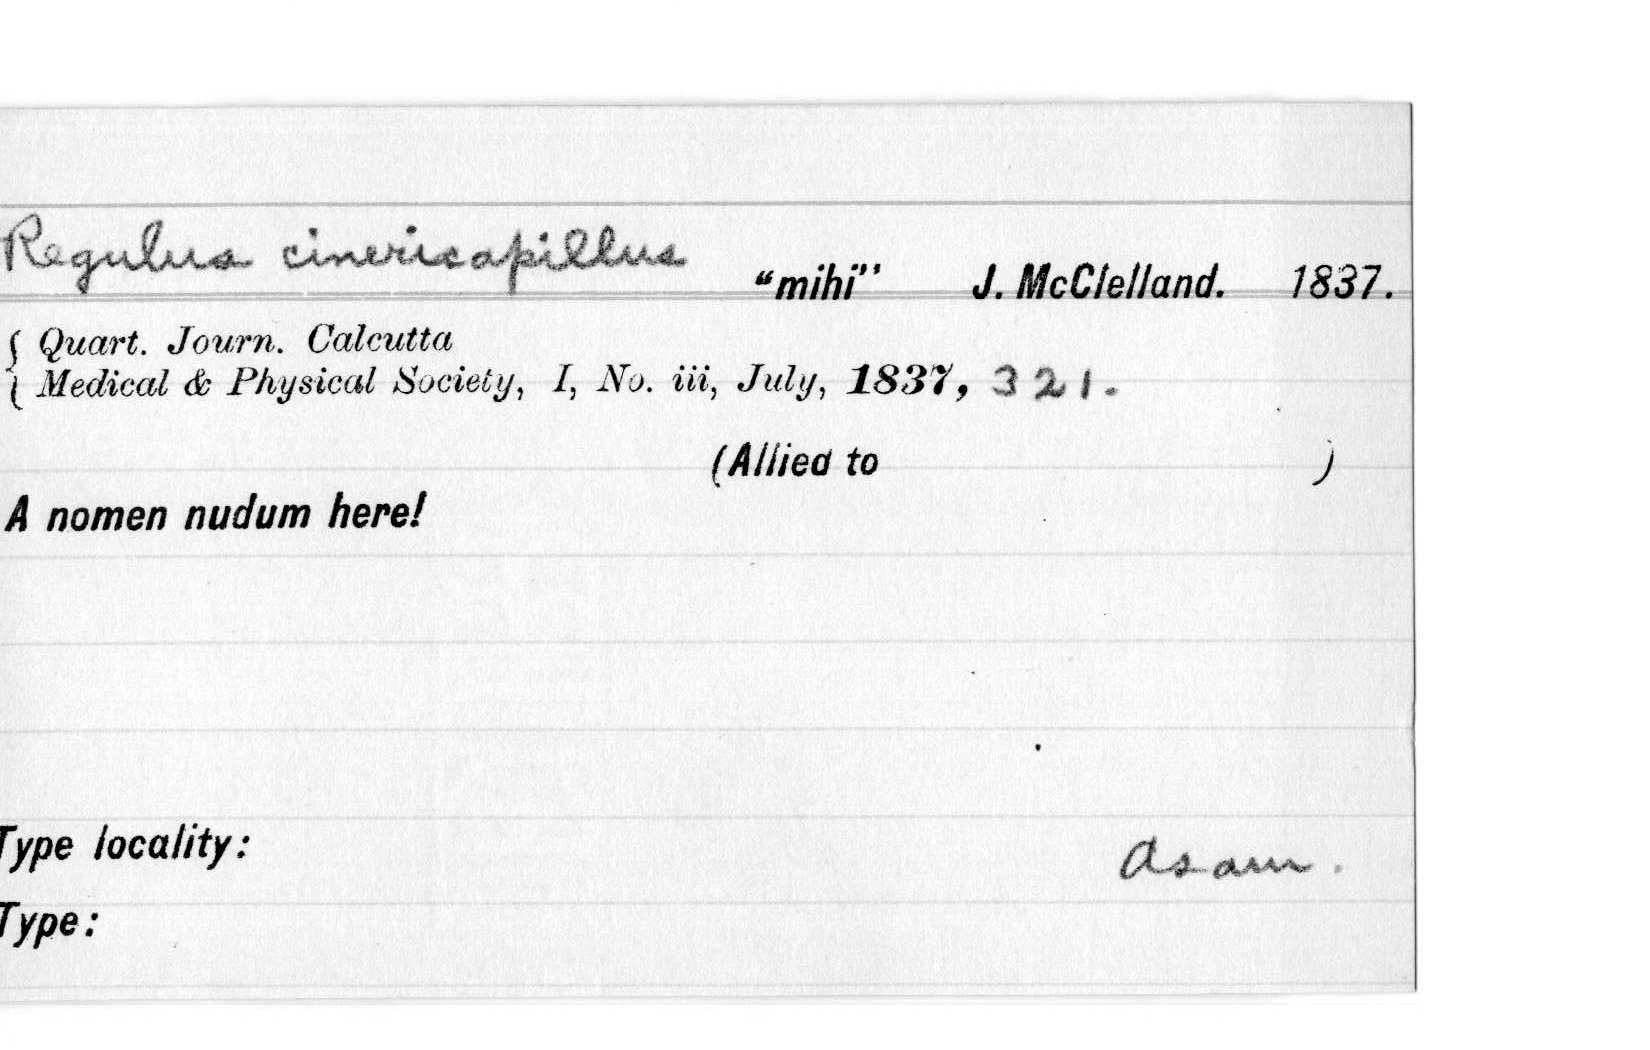 Regulus cinericapillus "mihi" J. McClelland. 1837.
{ Quart. Journ. Calcutta
{ Medical & Physical Society, I, No. iii, July, 1837, 321.
(Allied to )
A nomen nudum here!
Type locality: Asam.
Type: